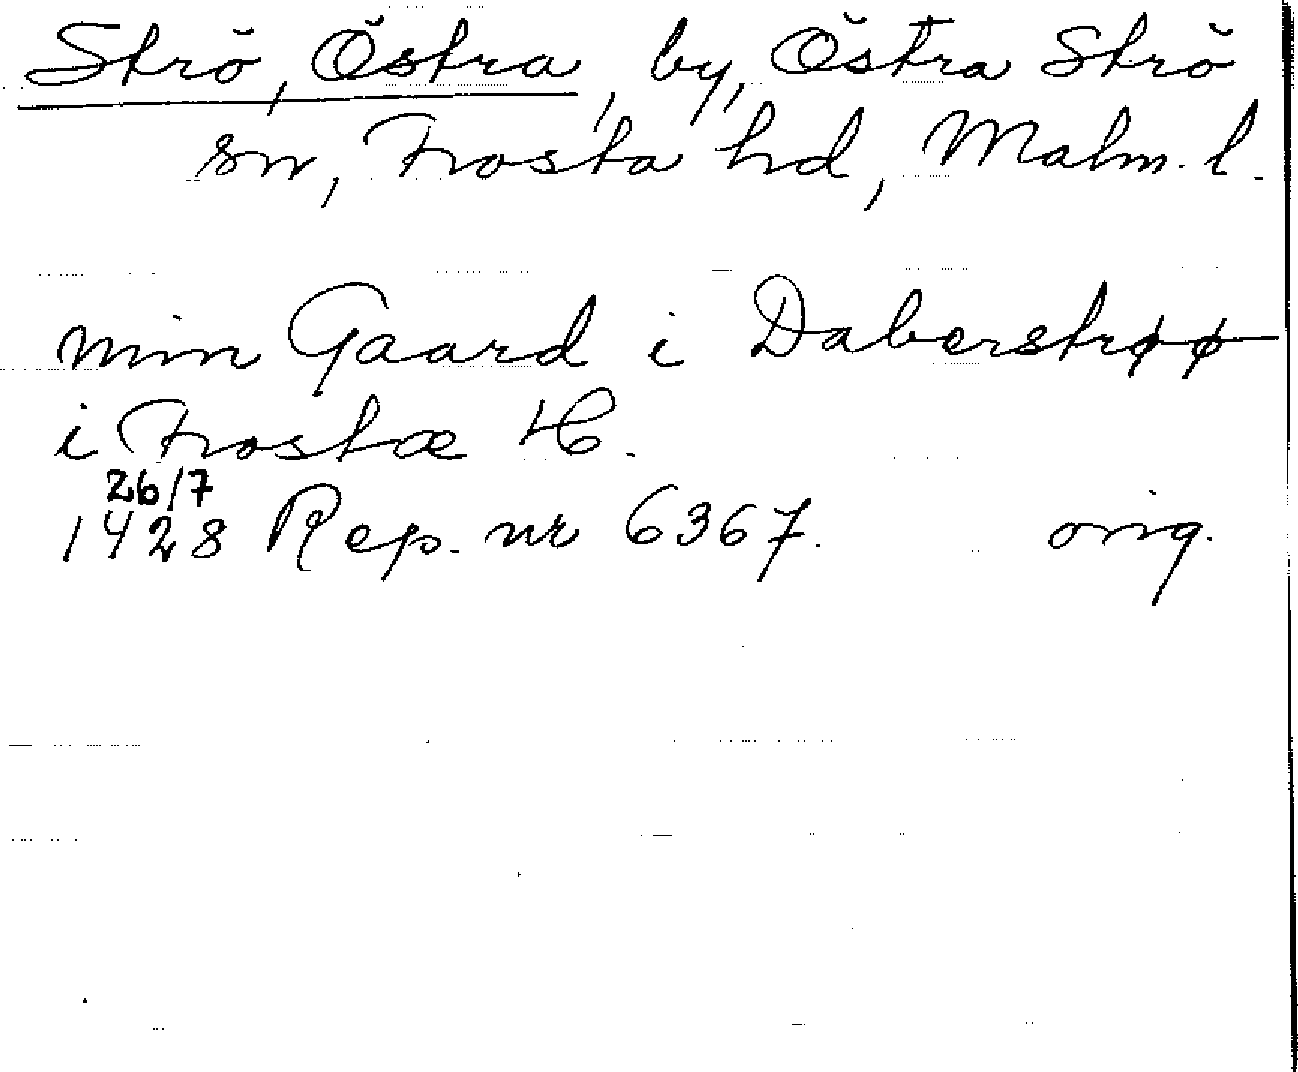 Strö, Östra, by, Östra Strö
sn, Frosta hd, Malm. l.
min Gaard i Daberstrøø
i Frostæ H.
26/7
1428 Rep. nr 6367. orig.